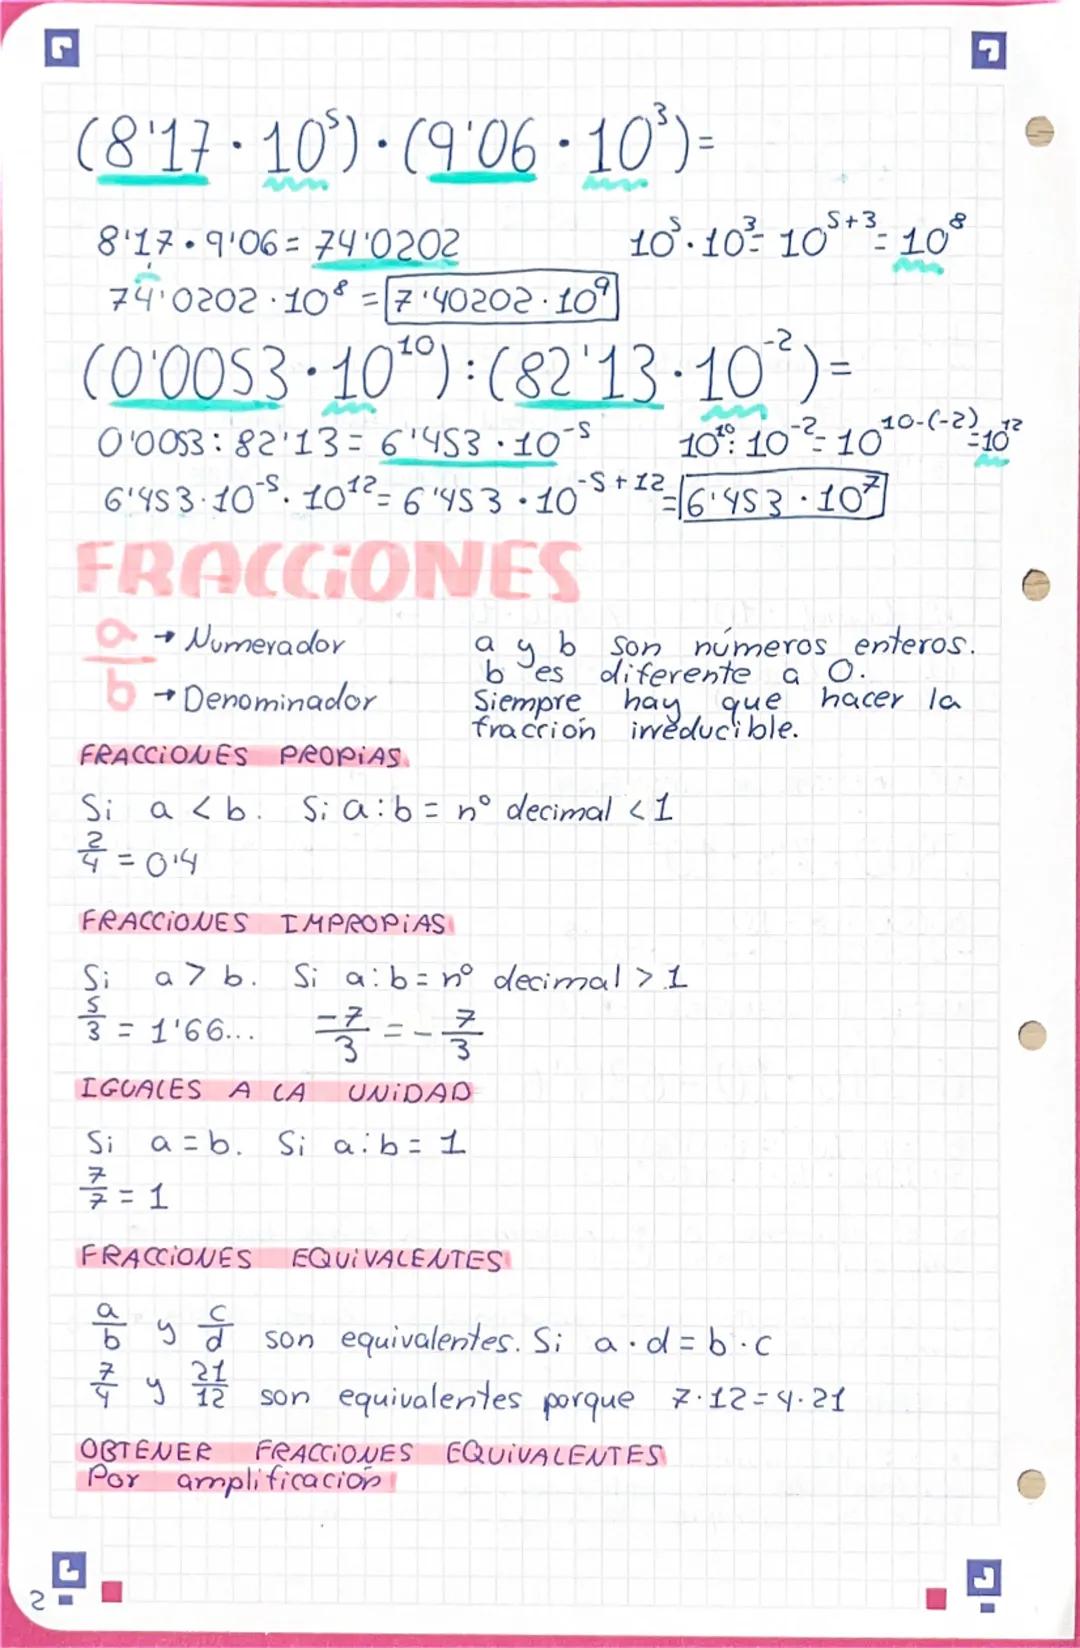 (8'17 · 10⁵) · (9'06 · 10³) =
8'17 · 9'06 = 74'0202   10⁵ · 10³ = 10⁵⁺³ = 10⁸
74'0202 · 10⁸ = 7'40202 · 10⁹
(0'0053 · 10¹⁰) : (82'13 · 10⁻²) =
0'0053 : 82'13 = 6'453 · 10⁻⁵   10¹⁰ : 10⁻² = 10¹⁰⁻⁽⁻²⁾ = 10¹²
6'453 · 10⁻⁵ · 10¹² = 6'453 · 10⁻⁵⁺¹² = 6'453 · 10⁷
FRACCIONES
a → Numerador
b → Denominador
a y b son números enteros.
b es diferente a 0.
Siempre hay que hacer la
fracción irreducible.
FRACCIONES PROPIAS
Si a < b. Si a : b = nº decimal < 1
2/4 = 0'4
FRACCIONES IMPROPIAS
Si a > b. Si a : b = nº decimal > 1
5/3 = 1'66...   -7/3 = - 7/3
IGUALES A LA UNIDAD
Si a = b. Si a : b = 1
7/7 = 1
FRACCIONES EQUIVALENTES
a/b y c/d son equivalentes. Si a · d = b · c
7/4 y 21/12 son equivalentes porque 7 · 12 = 4 · 21
OBTENER FRACCIONES EQUIVALENTES
Por amplificación
2